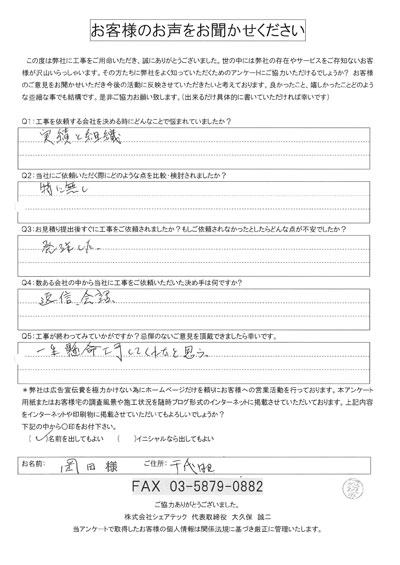 お客様のお声をお聞かせください
この度は弊社に工事をご用命いただき、誠にありがとうございました。世の中には弊社の存在やサービスをご存知ないお客
様が沢山いらっしゃいます。その方たちに弊社をよく知っていただくためのアンケートにご協力いただけるでしょうか? お客様
のご意見をお聞かせいただき今後の活動に反映させていただきたいと考えております。良かったこと、嬉しかったことどのよう
な些細な事でも結構です。是非ご協力お願い致します。(出来るだけ具体的に書いていただければ幸いです)
Q1:工事を依頼する会社を決める時にどんなことで悩まれていましたか?
実績と組織
Q2:当社にご依頼いただく際にどのような点を比較・検討されましたか?
特に無し
Q3:お見積り提出後すぐに工事をご依頼されましたか?もしご依頼されなかったとしたらどんな点が不安でしたか?
発注した。
Q4:数ある会社の中から当社に工事をご依頼いただいた決め手は何ですか?
返信、会話
Q5:工事が終わってみていかがですか?忌憚のないご意見を頂戴できましたら幸いです。
一生懸命工事してくれたと思う。
*弊社は広告宣伝費を極力かけない為にホームページだけを頼りにお客様への営業活動を行っております。本アンケート
用紙またはお客様宅の調査風景や施工状況を随時ブログ形式のインターネットに掲載させていただいております。上記内容
をインターネットや印刷物に掲載させていただいてもよろしいでしょうか?
下記の中から○印をお付下さい。
( ✓ )名前を出してもよい ( )イニシャルなら出してもよい
お名前: 岡田 様 ご住所: 千代田区
FAX 03-5879-0882
ご協力ありがとうございました。
株式会社シェアテック 代表取締役 大久保 誠二
当アンケートで取得したお客様の個人情報は関係法規に基づき厳正に管理いたします。